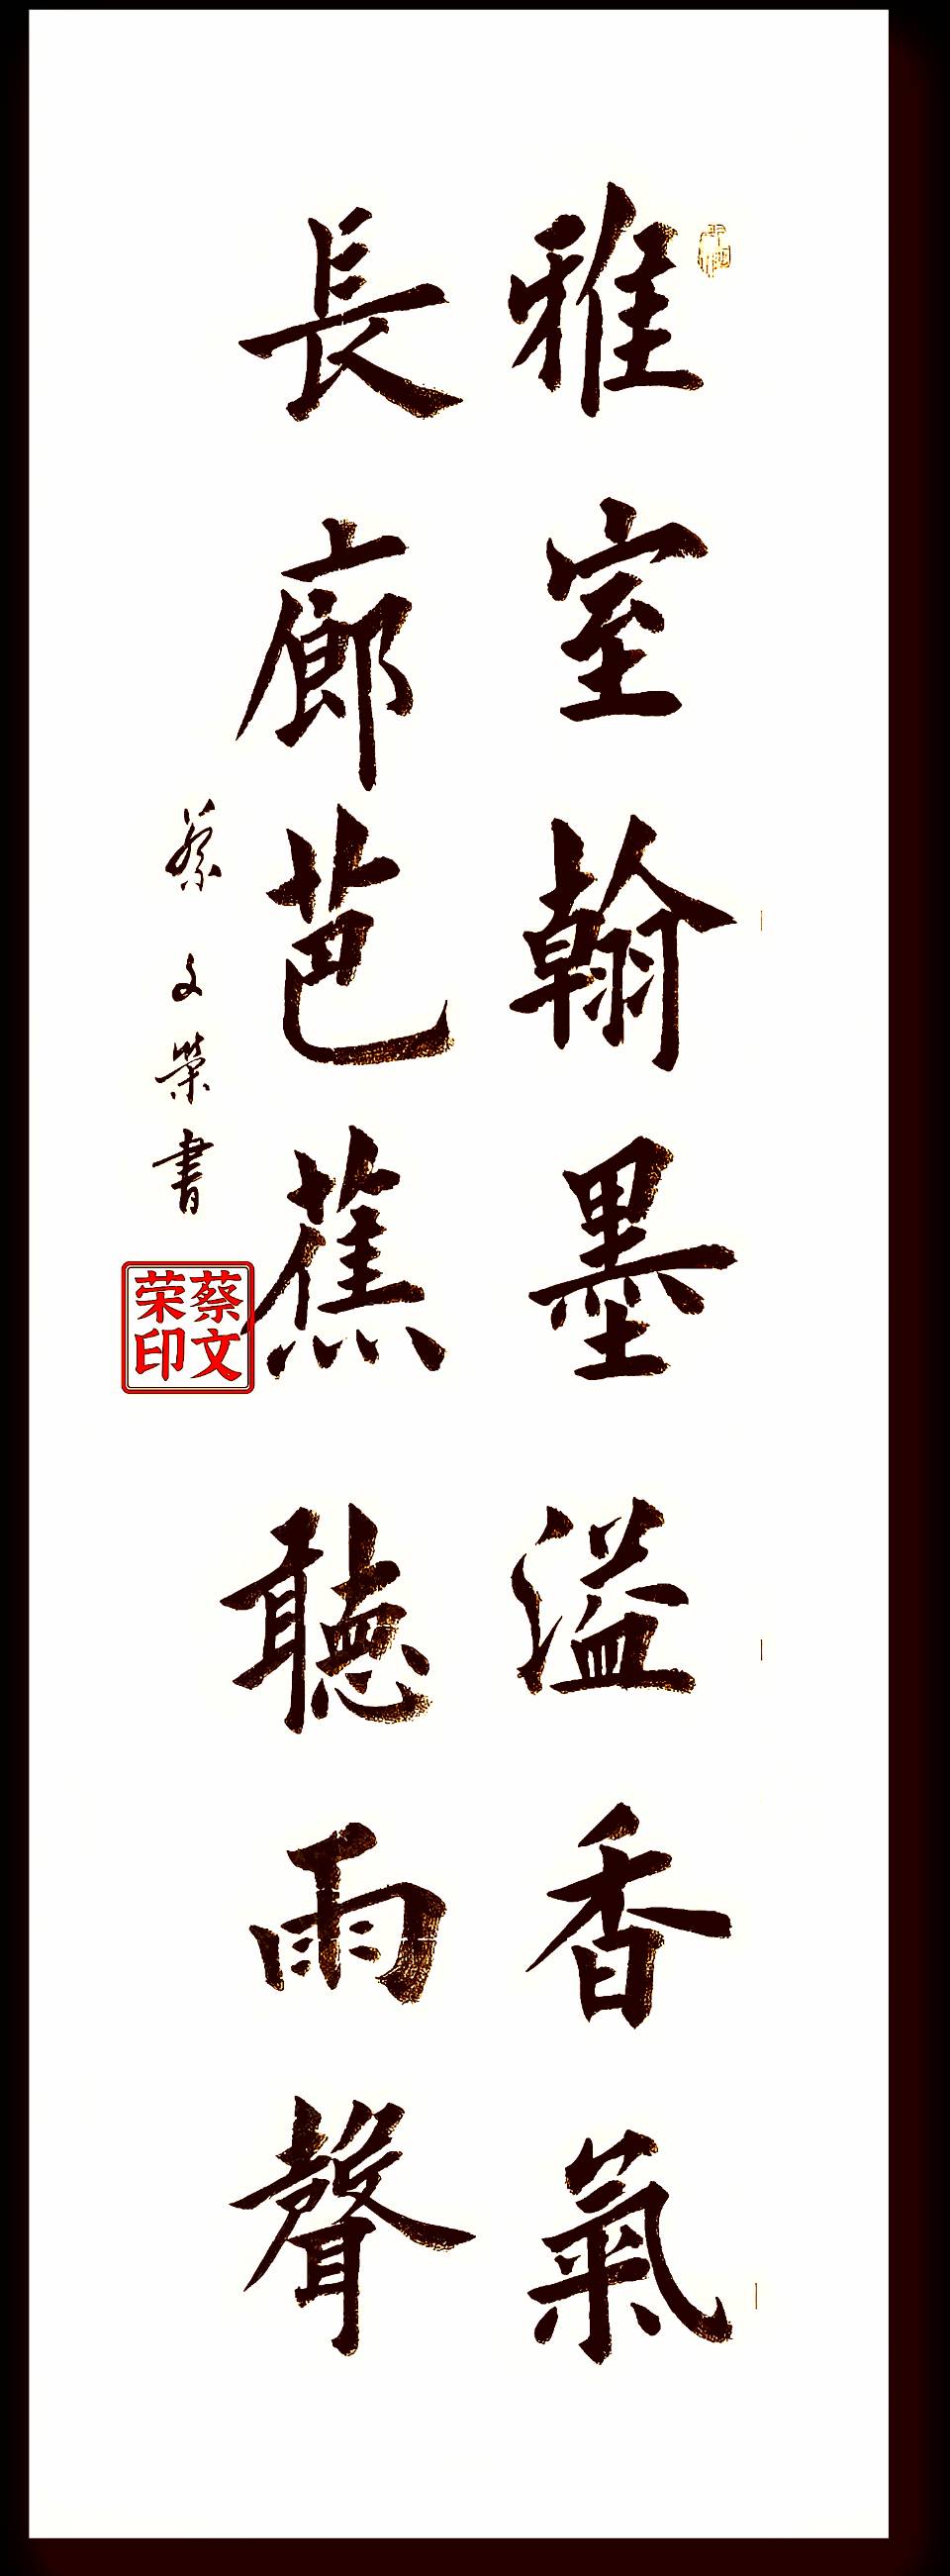 雅室翰墨溢香氣
長廊芭蕉聽雨聲
蔡文榮書
蔡文
荣印